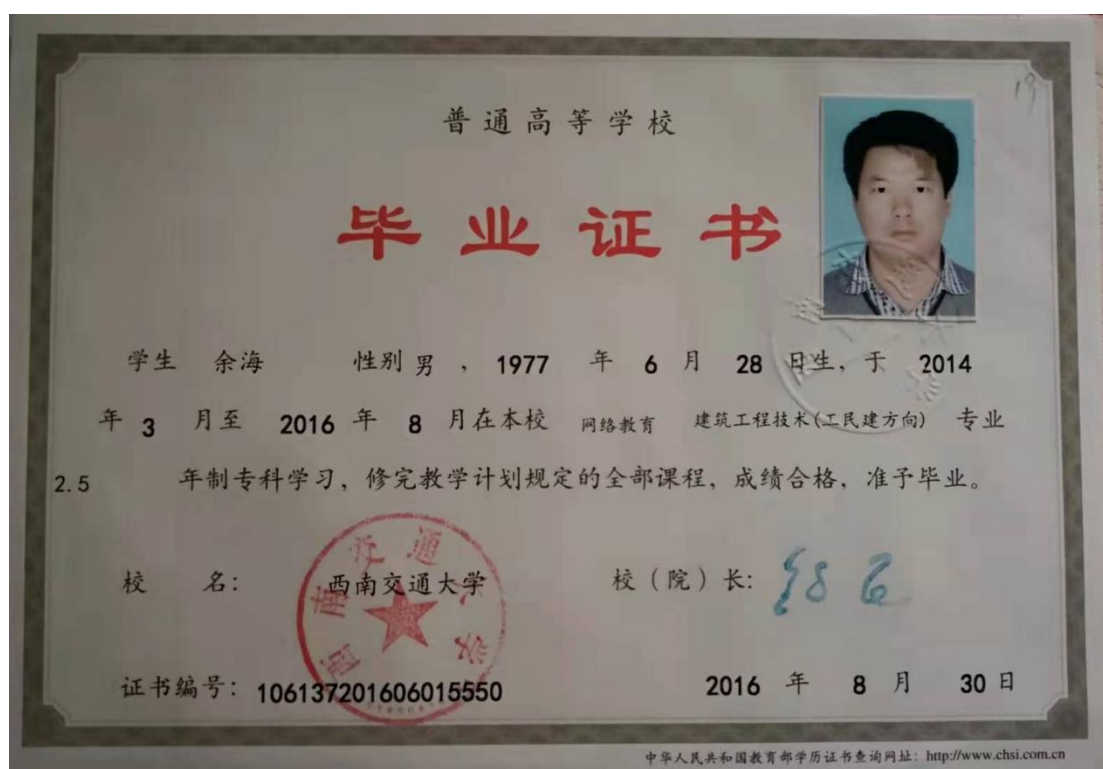 19
普通高等学校
毕业证书
学生 余海 性别 男 ,1977 年 6 月 28 日生,于 2014
年 3 月至 2016 年 8 月在本校 网络教育 建筑工程技术(工民建方向) 专业
2.5 年制专科学习,修完教学计划规定的全部课程,成绩合格,准予毕业。
校 名: 西南交通大学 校(院)长:
西南交通大学
证书编号: 106137201606015550 2016 年 8 月 30 日
中华人民共和国教育部学历证书查询网址: http://www.chsi.com.cn